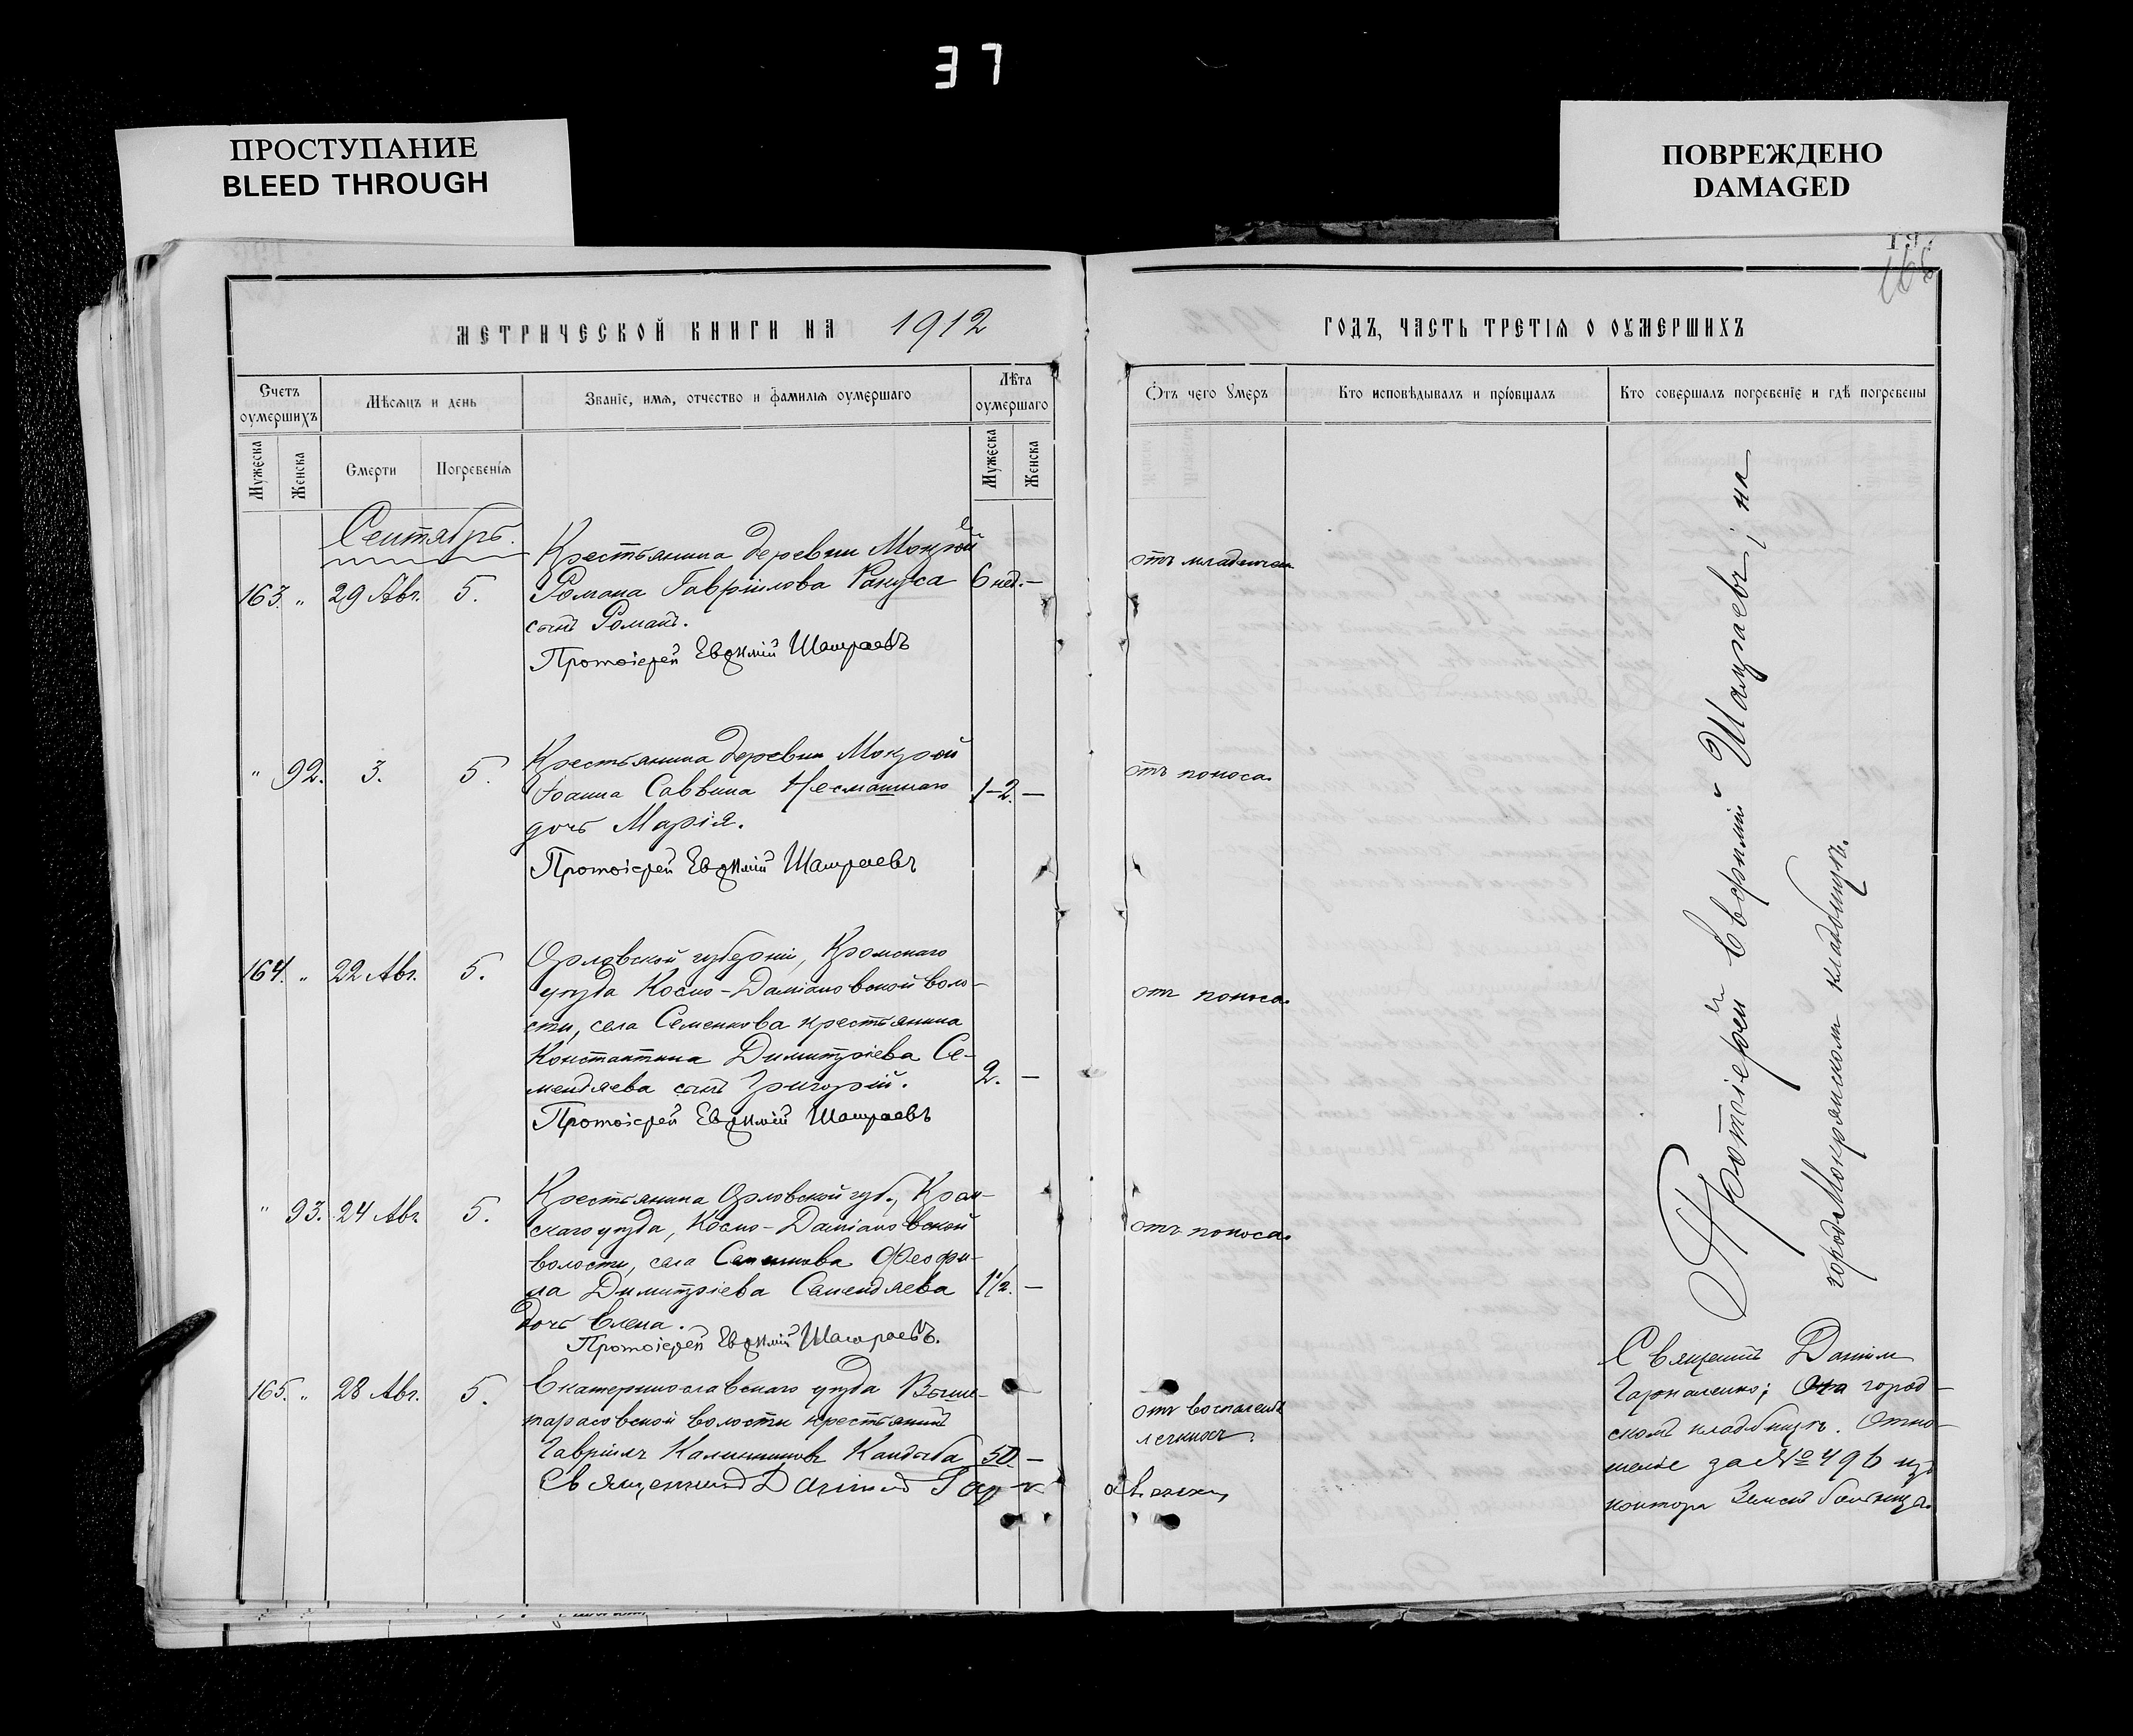 37
ПРОСТУПАНИЕ
BLEED THROUGH
ПОВРЕЖДЕНО
DAMAGED
МЕТРИЧЕСКОЙ КНИГИ НА 1912
Счетъ оумершихъ
Мѣсяцъ и день
Званіе, имя, отчество и фамилія оумершаго
Лѣта оумершаго
Мужеска
Женска
Смерти
Погребенія
Мужеска
Женска
Сентябрь.
Крестьянина деревни Мокрой
163. " 29 Авг. 5. Романа Гавріилова Ракуса 6 нед. —
сынъ Романъ.
Протоіерей Евѳимій Шамраевъ
Крестьянина деревни Мокрой
" 92. 3. 5. Іоанна Саввина 1-2. —
дочь Марія.
Протоіерей Евѳимій Шамраевъ
Орловской губерніи, Кромскаго
164. " 22 Авг. 5. уѣзда Космо-Даміановской воло-
сти, села Семенкова крестьянина
Константина Димитріева Се-
мендяева сынъ Григорій. 2. —
Протоіерей Евѳимій Шамраевъ
Крестьянина Орловской губ., Кром-
" 93. 24 Авг. 5. скаго уѣзда, Космо-Даміановской
волости, села Семенкова Ѳеофи-
ла Димитріева Семендяева 1½. —
дочь Елена.
Протоіерей Евѳимій Шамраевъ.
165. " 28 Авг. 5. Екатеринославскаго уѣзда
тарасовской волости крестьянинъ
Гавріилъ Калинниковъ Кандыба 50. —
Священникъ Даніилъ
ГОДЪ, ЧАСТЬ ТРЕТІЯ О ОУМЕРШИХЪ
Отъ чего Умеръ
Кто исповѣдывалъ и пріобщалъ
Кто совершалъ погребеніе и гдѣ погребены
отъ
отъ поноса.
отъ поноса.
отъ поноса.
отъ воспаленія
легкихъ.
Протоіерей Евфимій Шамраевъ; на
город. Мокрянскомъ кладбищѣ.
Священникъ Даніилъ
Гармаленко; На город-
скомъ кладбищѣ. Отно-
шеніе за № 496 изъ
конторы Земской больницы.